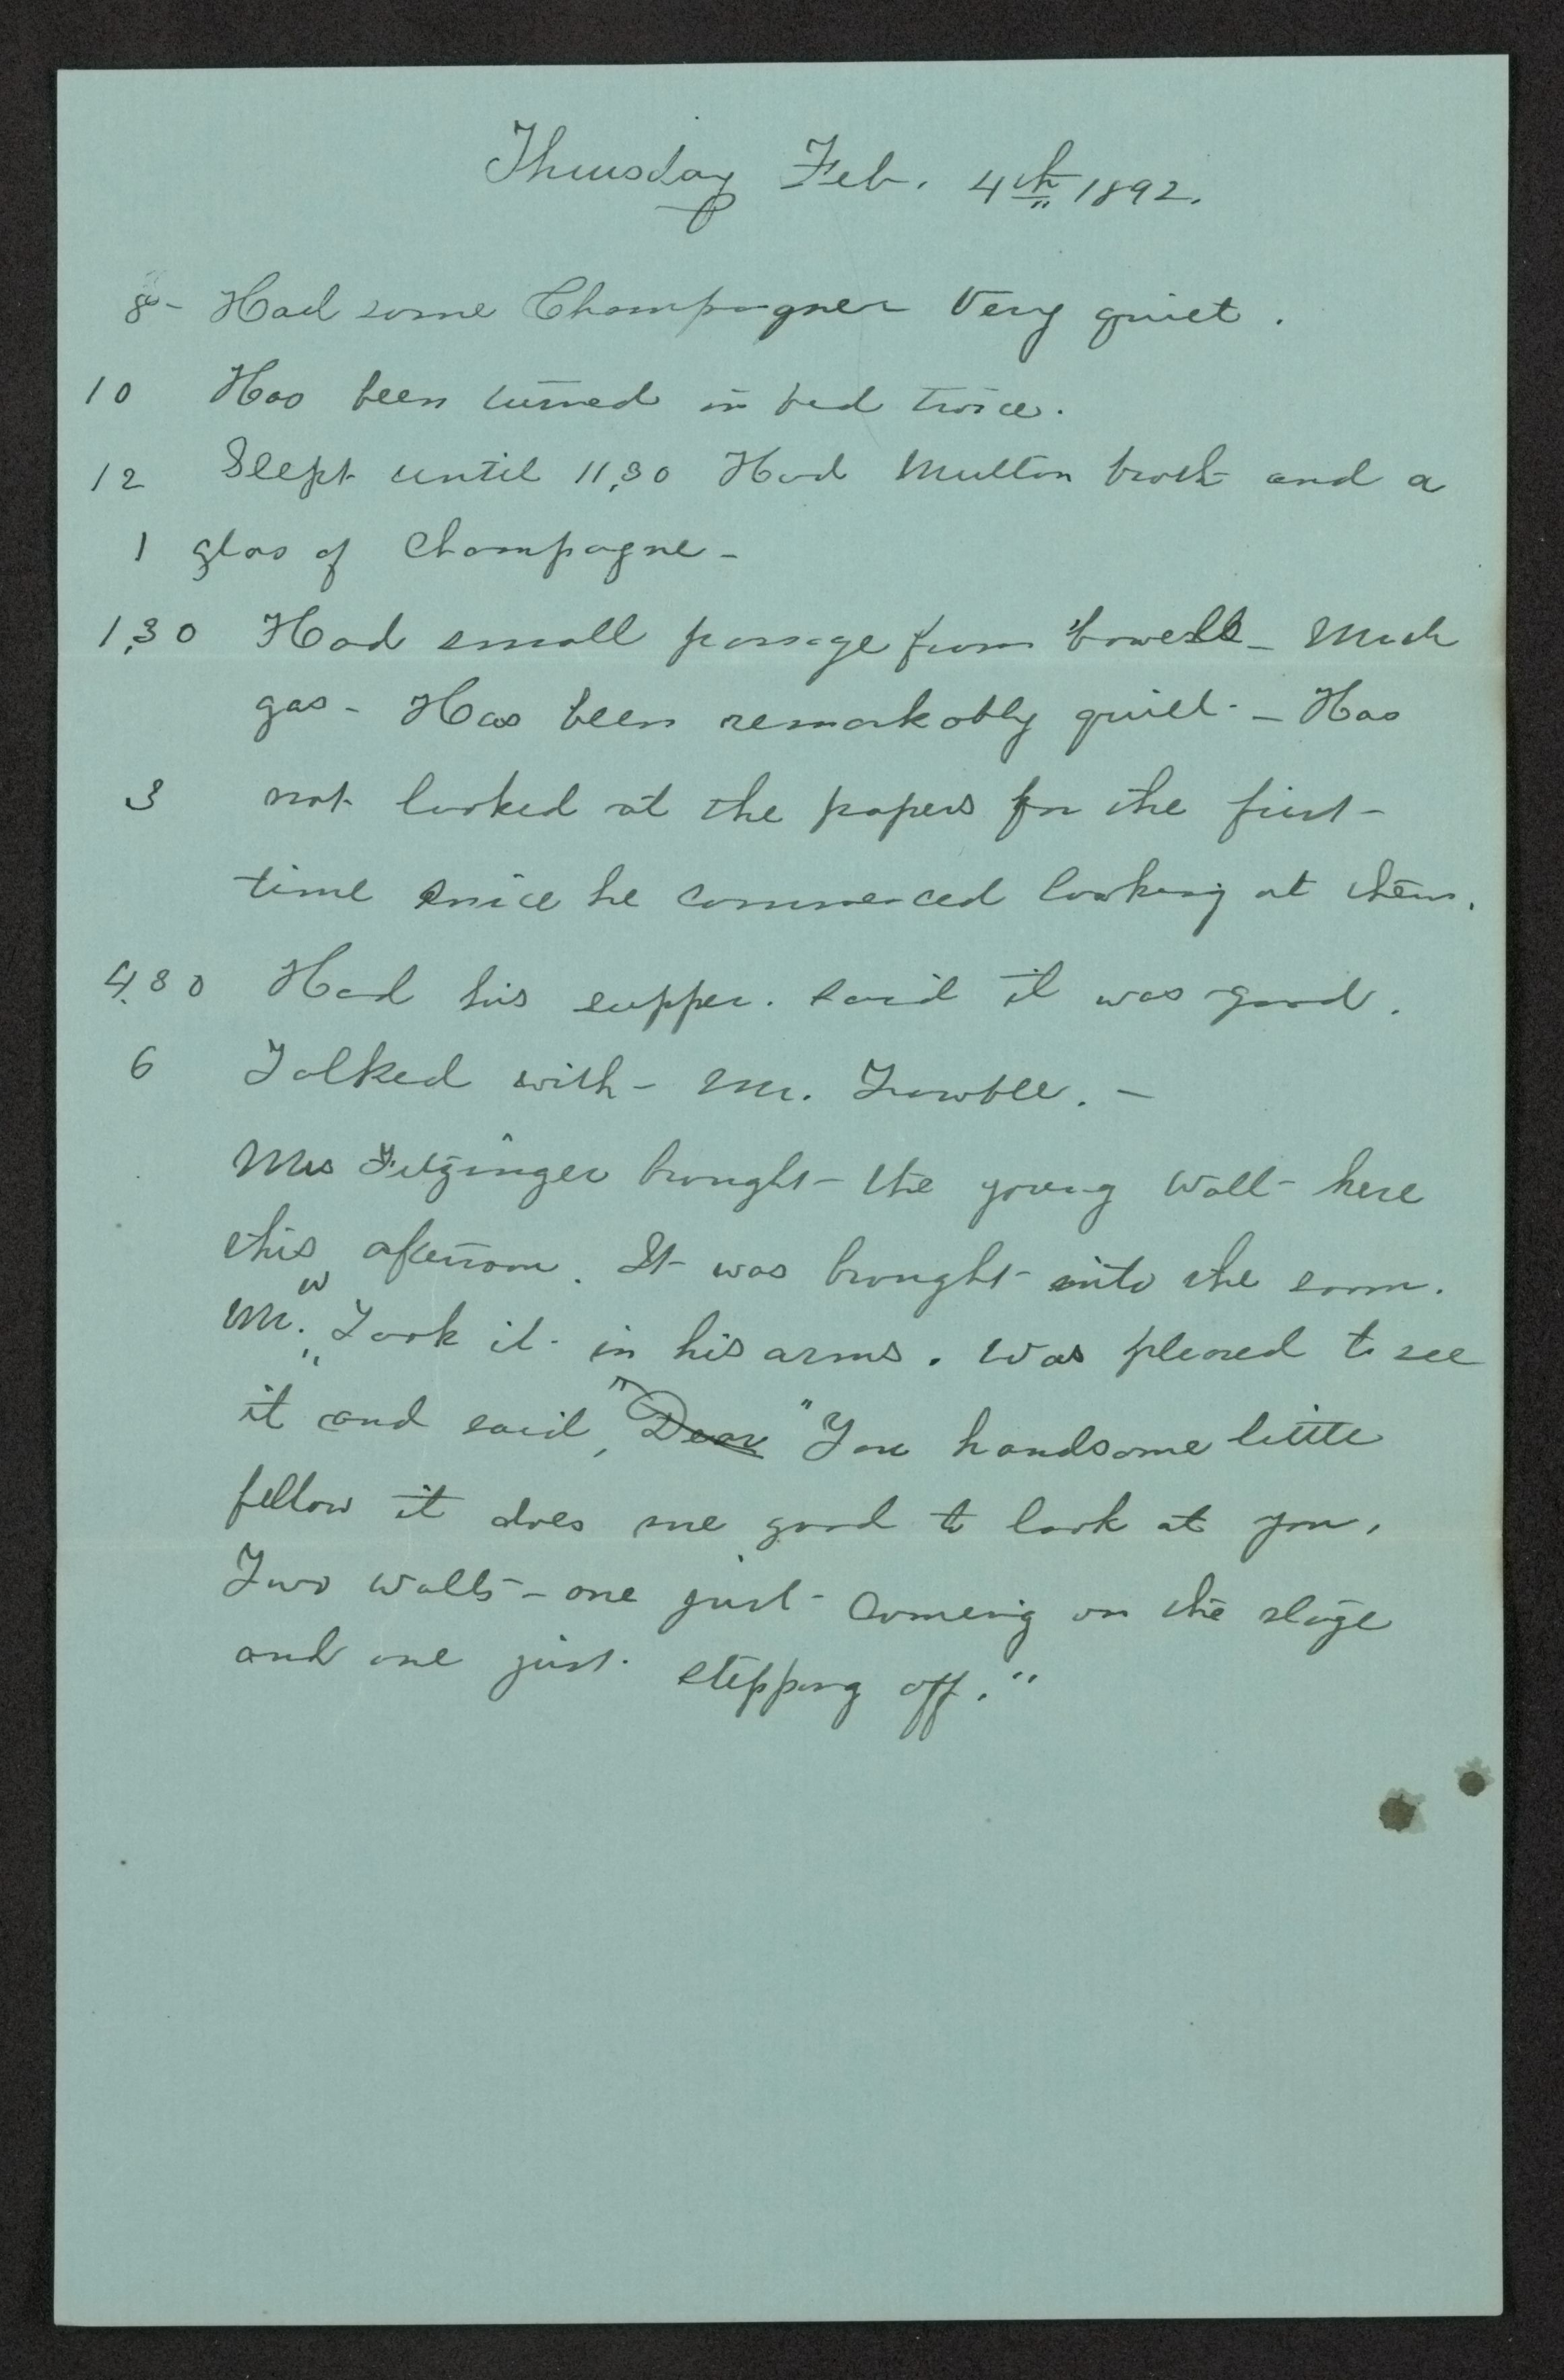 Thursday Feb. 4th 1892.
8 - Had some Champagne - Very quiet.
10 Has been turned in bed twice.
12 Slept until 11,30 Had Mutton broth and a
1 glass of Champagne -
1,30 Had small passage from bowels - Much
gas - Has been remarkably quiet - Has
3 not looked at the papers for the first
time since he commenced looking at them.
4,30 Had his supper. said it was good.
6 Talked with Mr. Trawbel. -
Mrs Fitzinger brought the young Walt here
this afternoon. It was brought into the room.
Mr. W Took it in his arms. was pleased to see
it and said, "Dear "You handsome little
fellow it does me good to look at you.
Two Walts - one just comeing on the stage
and one just stepping off."